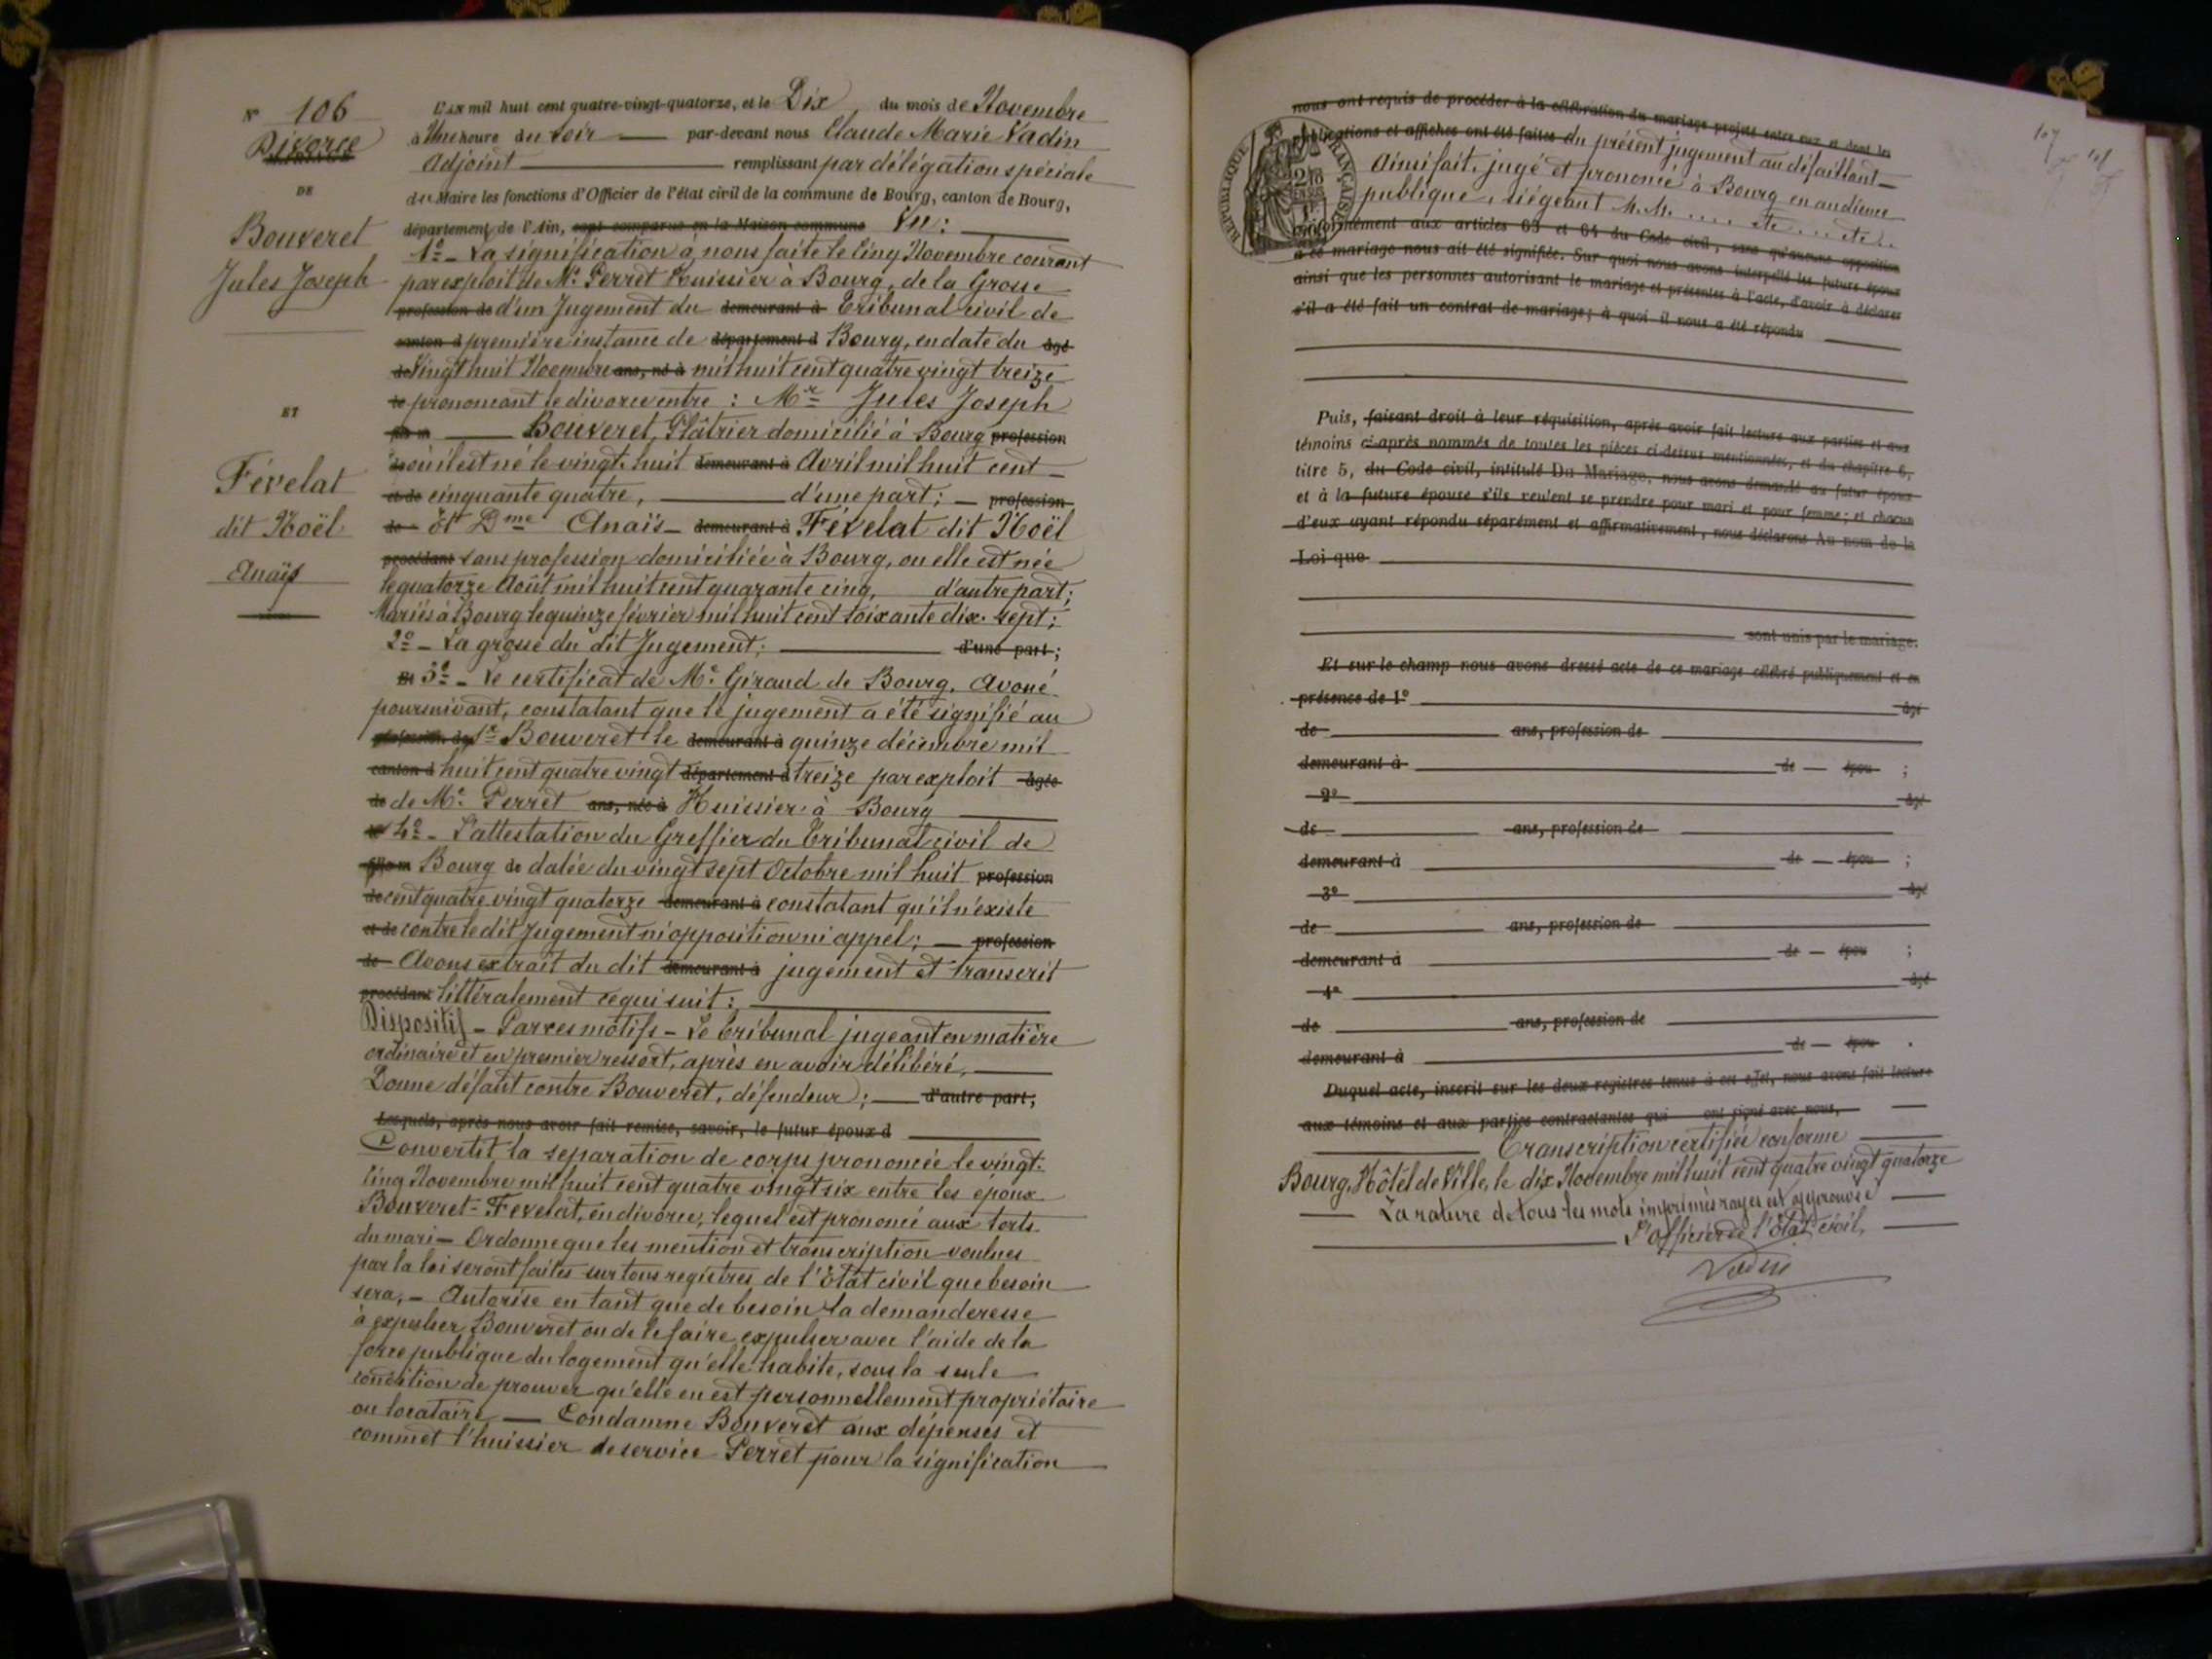 N° 106
Divorce
DE
Bouveret
Jules Joseph
ET
Févelat
dit Noël
Anaïs
L'an mil huit cent quatre-vingt-quatorze, et le Dix du mois de Novembre
à Une heure du soir par-devant nous Claude Marie Vadin
Adjoint remplissant par délégation spéciale
du Maire les fonctions d'Officier de l'état civil de la commune de Bourg, canton de Bourg,
département de l'Ain, sont comparus en la Maison commune Vu :
1° - La signification à nous faite le Cinq Novembre courant
par exploit de Me Perret Huissier à Bourg, de la Grosse
profession de d'un Jugement du demeurant à Tribunal civil de
canton d première instance de département d Bourg, en date du âgé
de Vingt huit Novembre ans, né à mil huit cent quatre vingt treize
le prononçant le divorce entre : Mr Jules Joseph
fils m Bouveret, Plâtrier domicilié à Bourg profession
de où il est né le vingt-huit demeurant à Avril mil huit cent
et de cinquante quatre, d'une part ; profession
de Et Dme Anaïs demeurant à Févelat dit Noël
procédant sans profession domiciliée à Bourg, où elle est née
le quatorze Août mil huit cent quarante cinq, d'autre part ;
Mariés à Bourg le quinze février mil huit cent soixante dix-sept ;
2° - La grosse du dit Jugement ; d'une part ;
Et 3° - Le certificat de Me Giraud de Bourg, Avoué
poursuivant, constatant que le jugement a été signifié au
profession de Sr Bouveret le demeurant à quinze décembre mil
canton d huit cent quatre vingt département d treize par exploit âgée
de de Me Perret ans, née à Huissier à Bourg
le 4° - L'attestation du Greffier du Tribunal civil de
fille m Bourg de datée du vingt sept Octobre mil huit profession
de cent quatre vingt quatorze demeurant à constatant qu'il n'existe
et de contre le dit Jugement ni opposition ni appel ; profession
de Avons extrait du dit demeurant à jugement et transcrit
procédant littéralement ce qui suit :
Dispositif - Par ces motifs - Le Tribunal jugeant en matière
ordinaire et en premier ressort, après en avoir délibéré,
Donne défaut contre Bouveret, défendeur ; d'autre part ;
Lesquels, après nous avoir fait remise, savoir, le futur époux d
Convertit la separation de corps prononcée le vingt-
cinq Novembre mil huit cent quatre vingt six entre les époux
Bouveret-Fevelat, en divorce, lequel est prononcé aux torts
du mari - Ordonne que les mention et transcription voulues
par la loi seront faites sur tous registres de l'Etat civil que besoin
sera, - Autorise en tant que de besoin la demanderesse
à expulser Bouveret ou de le faire expulser avec l'aide de la
force publique du logement qu'elle habite, sous la seule
condition de prouver qu'elle en est personnellement propriétaire
ou locataire - Condamne Bouveret aux dépenses et
commet l'huissier de service Perret pour la signification
107
nous ont requis de procéder à la célébration du mariage projeté entre eux et dont les
publications et affiches ont été faites du présent jugement au défaillant
Ainsi fait, jugé et prononcé à Bourg en audience
publique, siégeant M.M. .... etc ... etc..
RÉPUBLIQUE FRANÇAISE
conformément aux articles 63 et 64 du Code civil, sans qu'aucune opposition
à ce mariage nous ait été signifiée. Sur quoi nous avons interpellé les futurs époux
ainsi que les personnes autorisant le mariage et présentes à l'acte, d'avoir à déclarer
s'il a été fait un contrat de mariage ; à quoi il nous a été répondu
Puis, faisant droit à leur réquisition, après avoir fait lecture aux parties et aux
témoins ci-après nommés de toutes les pièces ci-dessus mentionnées, et du chapitre 6,
titre 5, du Code civil, intitulé Du Mariage, nous avons demandé au futur époux
et à la future épouse s'ils veulent se prendre pour mari et pour femme ; et chacun
d'eux ayant répondu séparément et affirmativement, nous déclarons Au nom de la
Loi que
sont unis par le mariage.
Et sur le champ nous avons dressé acte de ce mariage célébré publiquement et en
présence de 1° âgé
de ans, profession de
demeurant à de épou ;
2° âgé
de ans, profession de
demeurant à de épou ;
3° âgé
de ans, profession de
demeurant à de épou ;
4° âgé
de ans, profession de
demeurant à de épou .
Duquel acte, inscrit sur les deux registres tenus à cet effet, nous avons fait lecture
aux témoins et aux parties contractantes qui ont signé avec nous,
Transcription certifiée conforme
Bourg, Hôtel de Ville, le dix Novembre mil huit cent quatre vingt quatorze
La rature de tous les mots imprimés rayés est approuvée
L'officier de l'état civil,
Vadin